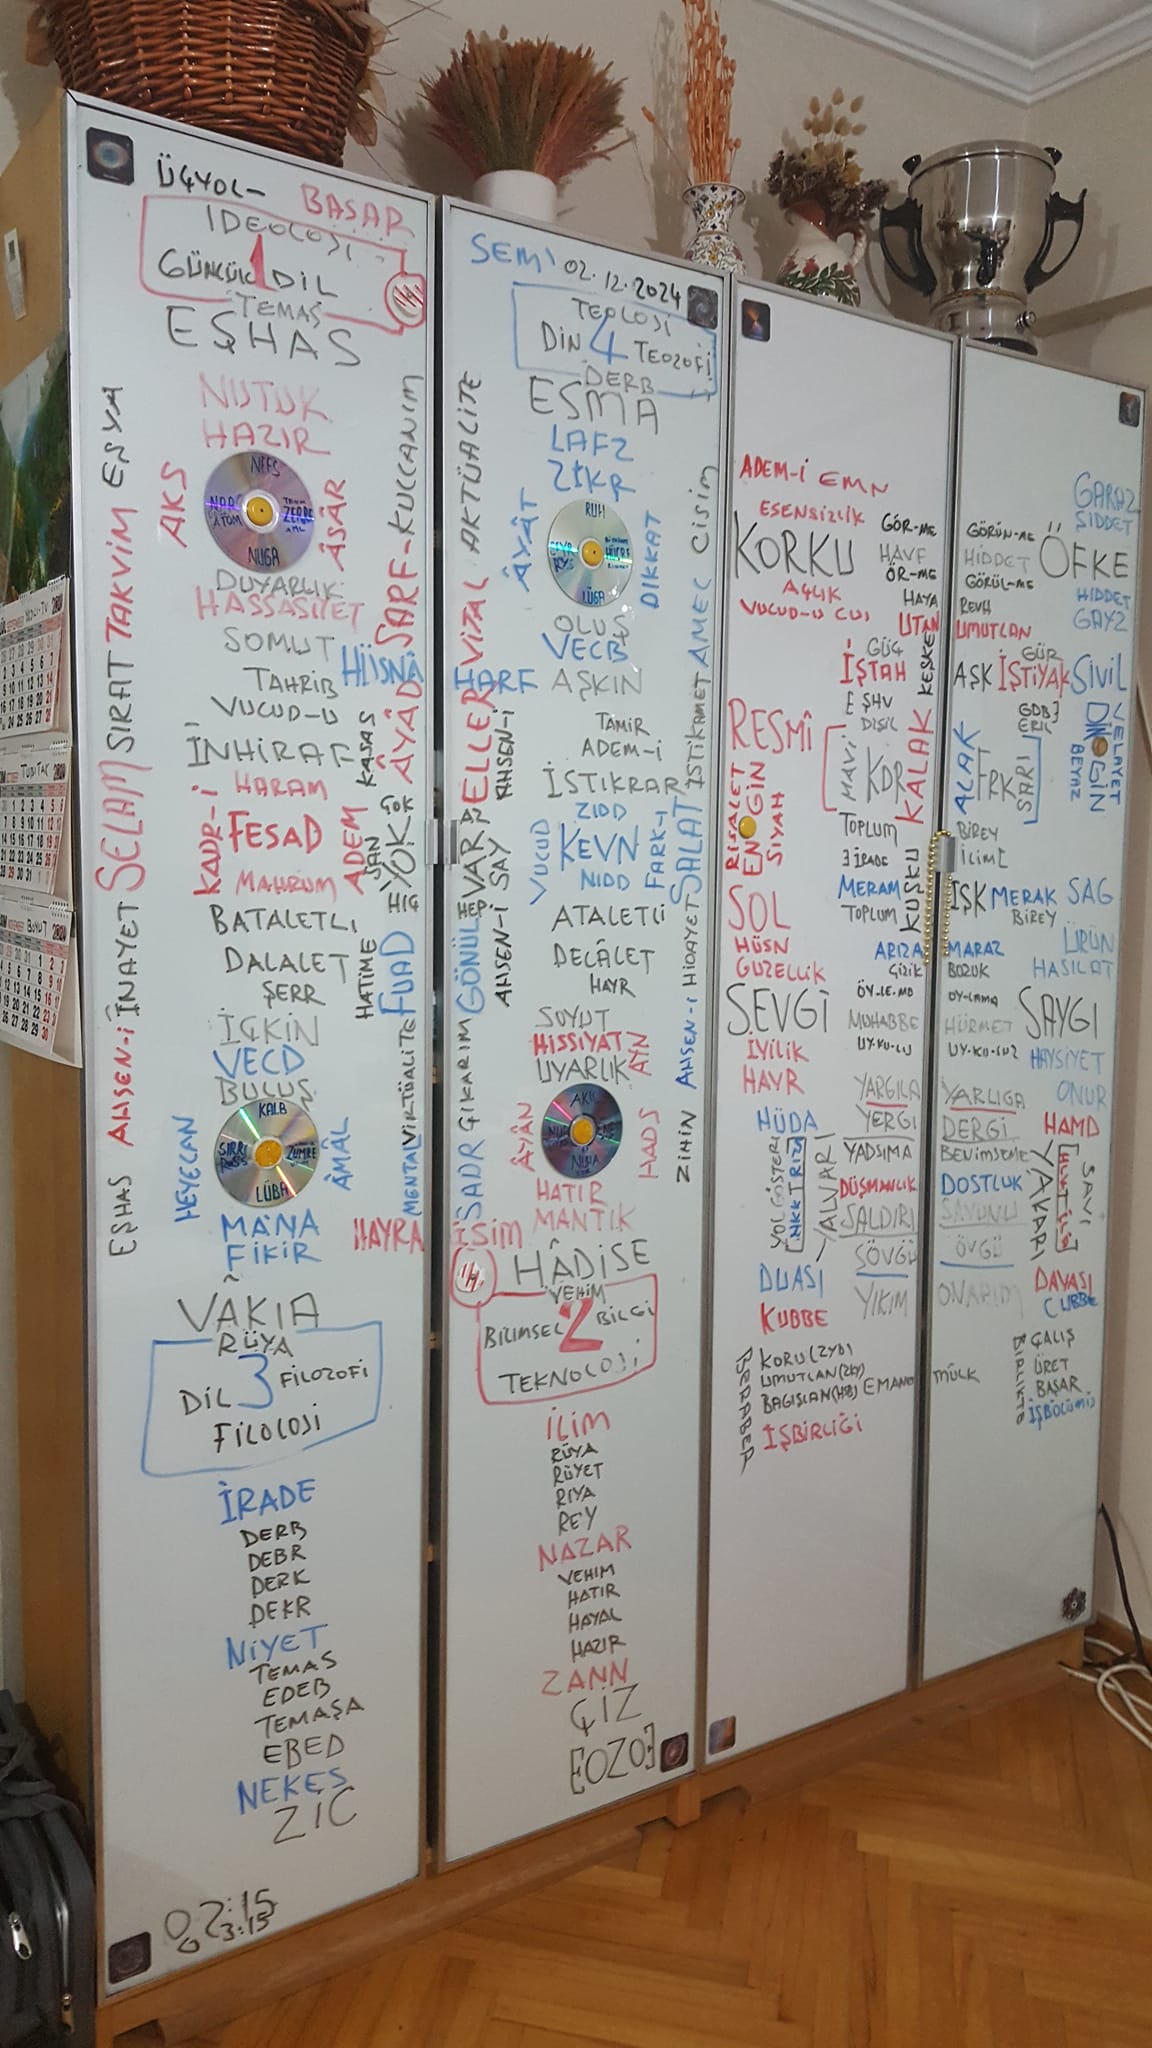 ÜÇYOL-
BASAR
İDEOLOJİ
GÜNCÜL 1 DİL
TEMAS
EŞHAS
NUTUK
HAZIR
AKS
NEFS
NUGA
ÂSÂR
DUYARLIK
HASSASİYET
SOMUT
HÜSNÂ
TAHRİB
VUCUD-U
İNHİRAF
HARAM
KADR-İ
FESAD
ADEM
MAHRUM
BATALETLİ
DALALET
ŞERR
İÇKİN
VECD
BULUŞ
KALB
LÜBA
HEYECAN
ÂMÂL
MÂNA
FİKİR
VAKIA
RÜYA
DİL 3 FİLOZOFİ
FİLOLOJİ
İRADE
DERB
DEBR
DERK
DEKR
NİYET
TEMAS
EDEB
TEMAŞA
EBED
NEKES
ZİC
02:15
03:15
EŞHAS AHSEN-İ İNAYET SELAM SIRAT TAKVİM EŞYA
SARF-KULLANIM
ÂYÂD
KASAS
ÇOK
YOK
HİÇ
HATİME
FUAD
VİRTÜALİTE
MENTAL
HAYRA
SEMİ
02.12.2024
TEOLOJİ
DİN 4 TEOZOFİ
DERB
ESMA
LAFZ
ZİKR
ÂYÂT
RUH
LÜGA
DİKKAT
OLUŞ
VECB
HARF
AŞKIN
TAMİR
ADEM-İ
İSTİKRAR
ZIDD
VUCUD
KEVN
FARK-I
NIDD
ATALETLİ
DELÂLET
HAYR
SOYUT
HİSSİYAT
AYN
UYARLIK
AKIL
NUHA
ÂYÂN
HADS
HATIR
MANTIK
İSİM
HÂDİSE
VEHİM
BİLİMSEL 2 BİLGİ
TEKNOLOJİ
İLİM
RÜYA
RÜYET
RIYA
REY
NAZAR
VEHIM
HATIR
HAYAL
HAZIR
ZANN
ÇİZ
[OZO]
VİTAL AKTÜALİTE
ELLER
AHSEN-İ
SAY
VAR
HEP
GÖNÜL
SADR ÇIKARIM
ZİHİN AHSEN-İ HİDAYET SALAT İSTİKAMET AMEL CİSİM
ADEM-İ EMN
ESENSİZLİK
KORKU
GÖR-ME
HAVF
ÖR-ME
AÇLIK
HAYA
UTAN
KEŞKE
GÜÇ
İŞTAH
DİŞİL
RESMÎ
MAVİ
KDR
KALAK
RİSALET
ENGİN
SİYAH
TOPLUM
İRADE
MERAM
TOPLUM
KUŞKU
SOL
HÜSN
GUZELLİK
ARIZA
ÇİZİK
SEVGİ
MUHABBE
İYİLİK
HAYR
YARGILA
HÜDA
YERGİ
YOL GÖSTERİ
YALVARI
YADSIMA
DÜŞMANLIK
SALDIRI
SÖVGÜ
DUASI
YIKIM
KUBBE
BERABER
UMUTLAN
BAGIŞLAN
EMAND
İŞBİRLİĞİ
GARAZ
ŞİDDET
GÖRÜN-ME
HİDDET
ÖFKE
GÖRÜL-ME
HİDDET
REVH
GAYZ
UMUTLAN
GÜR
AŞK İŞTİYAK SİVİL
ERİL
ALAK
FRK
SARI
DİNGİN
BEYAZ
VELAYET
BİREY
IŞK MERAK SAG
BİREY
ÜRÜN
MARAZ
BOZUK
HASILAT
SAYGI
HÜRMET
HAYSİYET
ONUR
YARLIGA
HAMD
DERGİ
BENİMSEME
DOSTLUK
SAVUNU
YAKARI
SAVI
ÖVGÜ
ONARIM
DAVASI
CÜBBE
MÜLK
BİRLİKTE
ÇALIŞ
ÜRET
BAŞAR
İŞBÖLÜMÜ